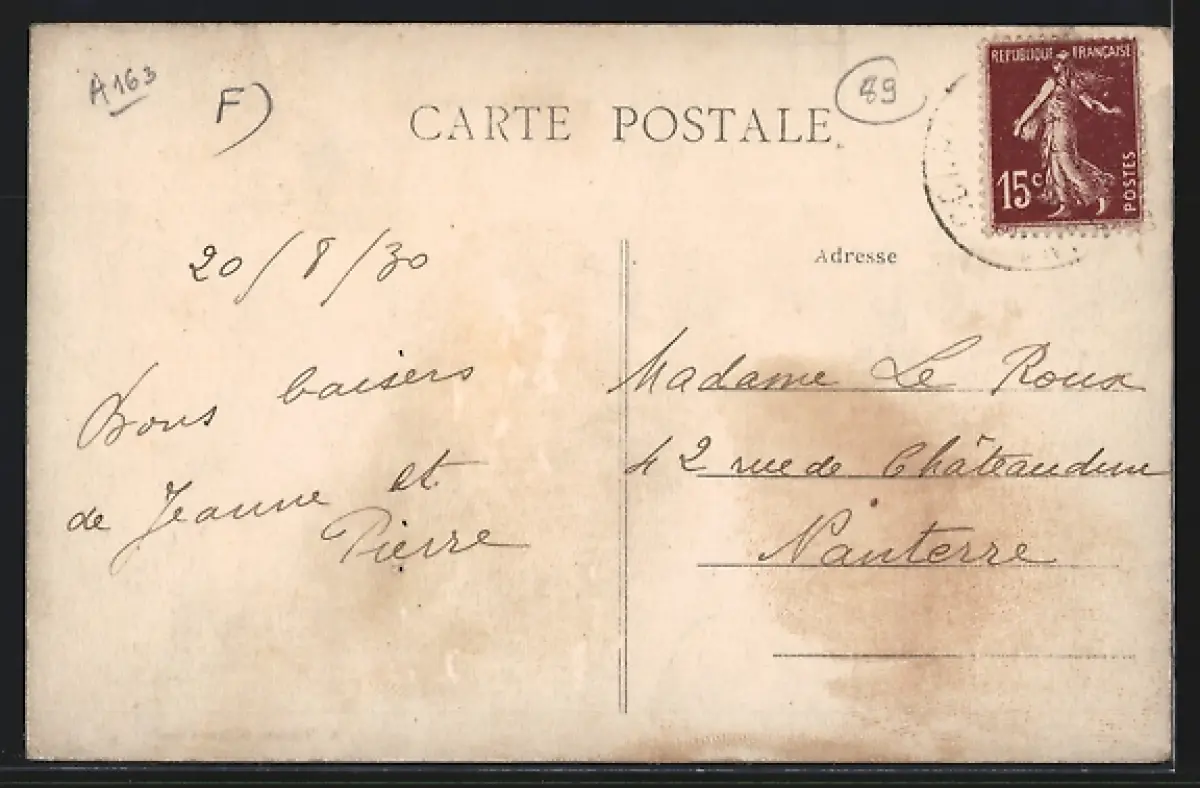 A163
F)
CARTE POSTALE
89
REPUBLIQUE FRANÇAISE
15c
POSTES
20/8/30
Adresse
Bons baisers
de Jeanne et
Pierre
Madame Le Roux
42 rue de Châteaudun
Nanterre